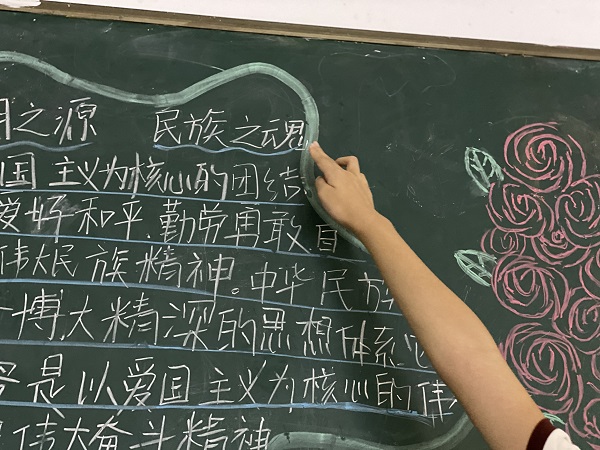 之源 民族之魂
国主义为核心的团结
爱好和平,勤劳勇敢自
伟大民族精神。中华民族
博大精深的思想体系
是以爱国主义为核心的伟
伟大奋斗精神